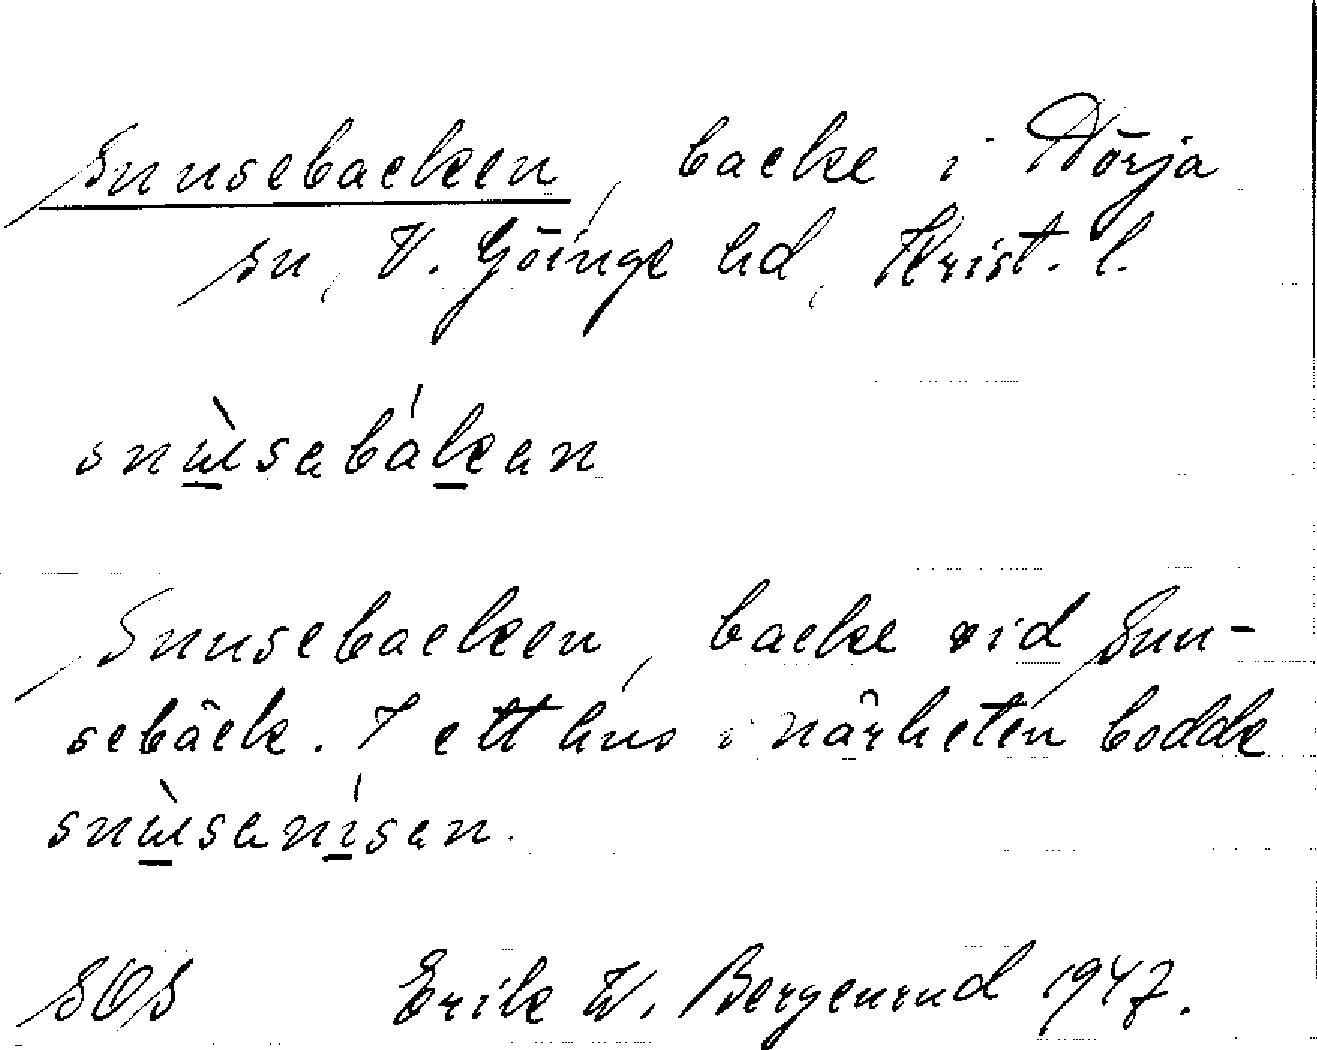 Snusebacken, backe i Nörja
sn, V. Göinge hd, Krist. l.
snùsebákan
Snusebacken, backe vid Snu-
sebäck. I ett hus i närheten bodde
snùsenísen.
SOS Erik W. Bergenrud 1947.